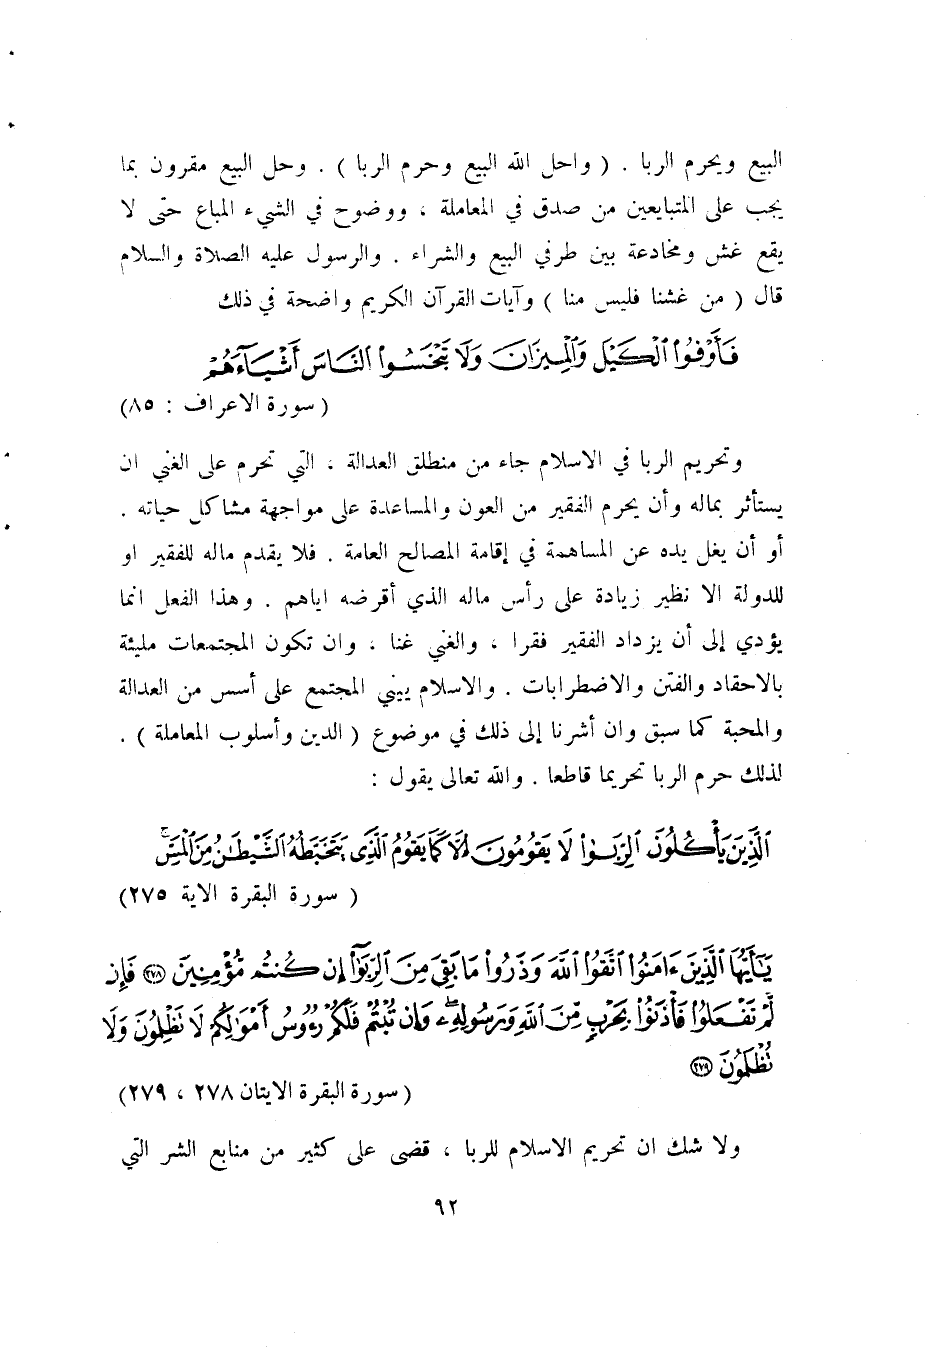 البيع ويحرم الربا . ( واحل الله البيع وحرم الربا ) . وحل البيع مقرون بما
يجب على المتبايعين من صدق في المعاملة ، ووضوح في الشيء المباع حتى لا
يقع غش ومخادعة بين طرفي البيع والشراء . والرسول عليه الصلاة والسلام
قال ( من غشنا فليس منا ) وآيات القرآن الكريم واضحة في ذلك
فَأَوْفُوا۟ ٱلْكَيْلَ وَٱلْمِيزَانَ وَلَا تَبْخَسُوا۟ ٱلنَّاسَ أَشْيَآءَهُمْ
( سورة الاعراف : ٨٥)
وتحريم الربا في الاسلام جاء من منطلق العدالة ، التي تحرم على الغني ان
يستأثر بماله وأن يحرم الفقير من العون والمساعدة على مواجهة مشاكل حياته .
أو أن يغل يده عن المساهمة في إقامة المصالح العامة . فلا يقدم ماله للفقير او
للدولة الا نظير زيادة على رأس ماله الذي أقرضه اياهم . وهذا الفعل انما
يؤدي إلى أن يزداد الفقير فقرا ، والغني غنا ، وان تكون المجتمعات مليئة
بالاحقاد والفتن والاضطرابات . والاسلام يبني المجتمع على أسس من العدالة
والمحبة كما سبق وان أشرنا إلى ذلك في موضوع ( الدين وأسلوب المعاملة ) .
لذلك حرم الربا تحريما قاطعا . والله تعالى يقول :
ٱلَّذِينَ يَأْكُلُونَ ٱلرِّبَوٰا۟ لَا يَقُومُونَ إِلَّا كَمَا يَقُومُ ٱلَّذِى يَتَخَبَّطُهُ ٱلشَّيْطَٰنُ مِنَ ٱلْمَسِّ ۚ
( سورة البقرة الاية ٢٧٥)
يَٰٓأَيُّهَا ٱلَّذِينَ ءَامَنُوا۟ ٱتَّقُوا۟ ٱللَّهَ وَذَرُوا۟ مَا بَقِىَ مِنَ ٱلرِّبَوٰٓا۟ إِن كُنتُم مُّؤْمِنِينَ ٢٧٨ فَإِن
لَّمْ تَفْعَلُوا۟ فَأْذَنُوا۟ بِحَرْبٍ مِّنَ ٱللَّهِ وَرَسُولِهِۦ ۖ وَإِن تُبْتُمْ فَلَكُمْ رُءُوسُ أَمْوَٰلِكُمْ لَا تَظْلِمُونَ وَلَا
تُظْلَمُونَ ٢٧٩
( سورة البقرة الايتان ٢٧٨ ، ٢٧٩)
ولا شك ان تحريم الاسلام للربا ، قضى على كثير من منابع الشر التي
٩٢